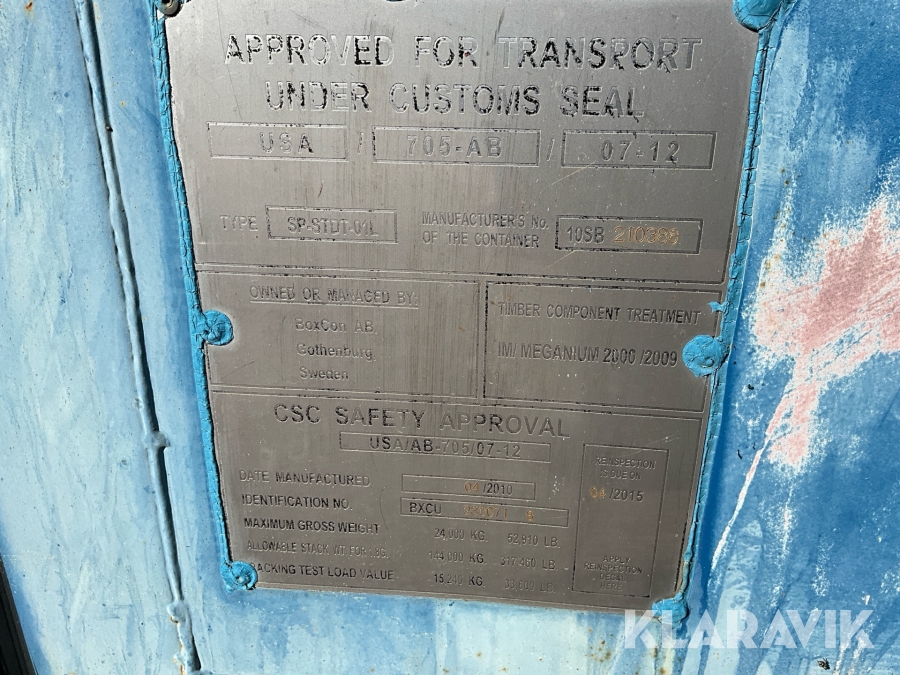 APPROVED FOR TRANSPORT
UNDER CUSTOMS SEAL
USA / 705-AB / 07-12
TYPE SP-STDT-01 MANUFACTURER'S No. OF THE CONTAINER 10SB
OWNED OR MANAGED BY:
BoxCon AB,
Gothenburg,
Sweden
TIMBER COMPONENT TREATMENT
IM/ MEGANIUM 2000 /2009
CSC SAFETY APPROVAL
USA/AB-705/07-12
DATE MANUFACTURED /2010
IDENTIFICATION NO. BXCU
MAXIMUM GROSS WEIGHT 24,000 KG. 52,910 LB.
ALLOWABLE STACK WT. FOR 1.8G. 144,000 KG. 317,460 LB.
RACKING TEST LOAD VALUE 15,240 KG 33,600 LB.
REINSPECTION
IS DUE ON
04/2015
APPLY
REINSPECTION
DECAL
HERE
KLARAVIK